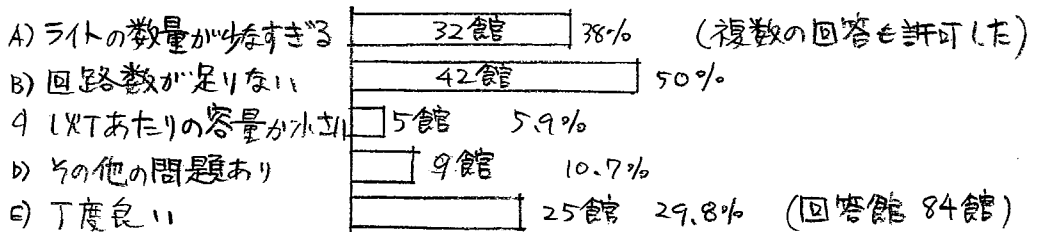 A) ライトの数量が少なすぎる 32館 38% (複数の回答も許可した)
B) 回路数が足りない 42館 50%
あたりの容量が小さい 5館 5.9%
D) その他の問題あり 9館 10.7%
E) 丁度良い 25館 29.8% (回答館 84館)